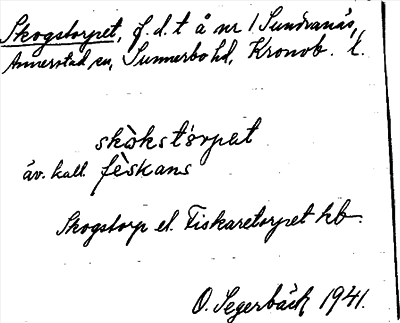 Skogstorpet, f.d. t å nr 1 Sundranäs,
Annerstad sn, Sunnerbo hd, Kronob. l.
skòkstórpet
äv. kall. fèskans
Skogstorp el. Fiskaretorpet hb.
O. Segerbäck 1941.